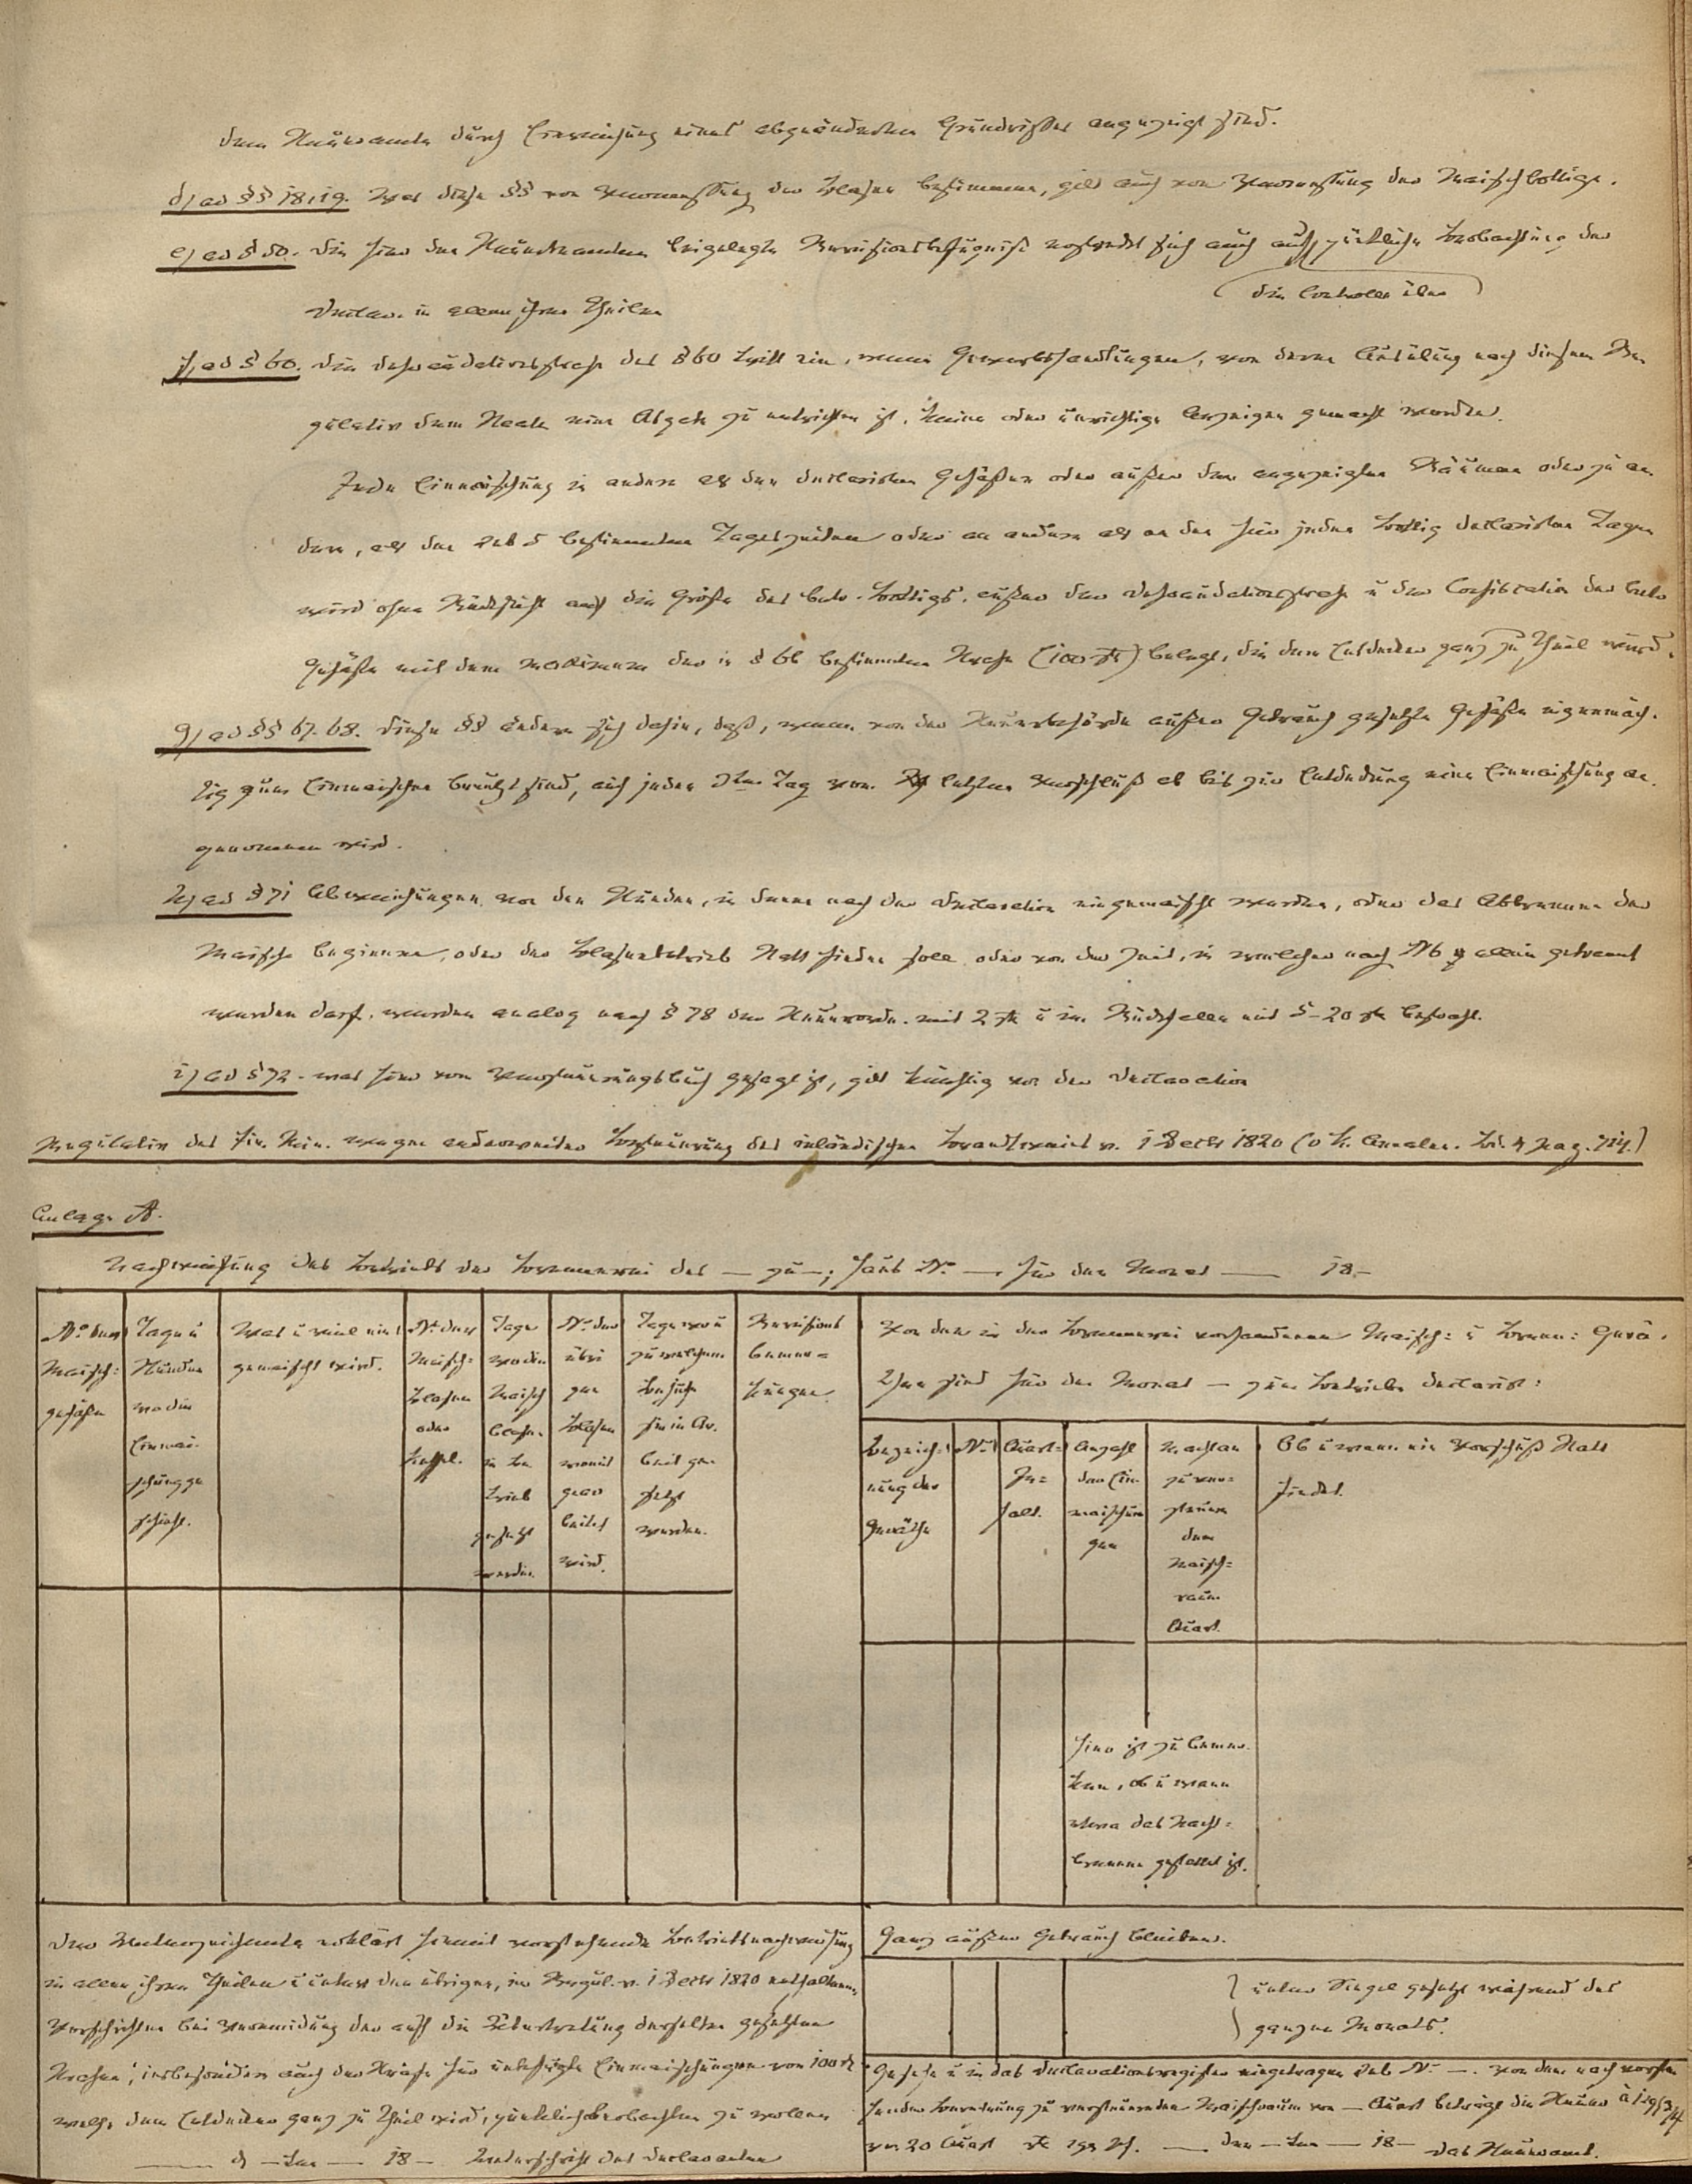 dem Steueramte durch Einreichung eines abgeänderten Grundrisses angezeigt sind.
d) ad §§ 18, 19. Was diese §§ von Vermessung der Blasen bestimmen, gilt auch von Vermessung der Maischbottige.
e) ad § 50. Die hier den Steuerbeamten beigelegte Revisionsbefugniß erstreckt sich auch auf pünktliche Beobachtung der
(die Controlle über)
Declar. in allen ihren Theilen
f) ad § 60. Die Defraudationsstrafe des § 60 tritt ein, wenn Gewerbshandlungen, von deren Ausübung nach diesem Re
gulativ dem Staate eine Abgabe zu entrichten ist, keine oder unrichtige Anzeigen gemacht werden.
Jede Einmaischung in andere als den declarirten Gefäßen oder außer den angezeigten Räumen oder zu an
dern, als den sub 5 bestimmten Tageszeiten oder an andern als an den für jeden Bottig declarirten Tagen
wird ohne Rücksicht auf die Größe des betr. Bottigs, außer der Defraudationsstrafe u der Confiscation der betr
Gefäße mit dem Maximum der in § 66 bestimmten Strafe (100 rt) belegt, die dem Entdecker ganz zu Theil wird.
g) ad §§ 67. 68. Diese §§ ändern sich dahin, daß, wenn von der Steuerbehörde außer Gebrauch gesetzte Gefäße eigenmäch.
tig zum Einmaischen benutzt sind, auf jeden 3ten Tag vom letzten Verschluß ab bis zur Entdeckung eine Einmaischung an.
genommen wird.
h) ad § 71 Abweichungen von den Stunden, in denen nach der Declaration eingemaischt werden, oder das Abbrennen der
Maische beginnen, oder der Blasenbetrieb Statt finden soll oder von der Zeit, in welcher nach № 9 allein gebrannt
werden darf, werden analog nach § 78 der Steuerordn. mit 2 rt u im Rückfalle mit 5-20 rt bestraft.
i) ad § 72. was hier vom Versteuerungsbuch gesagt ist, gilt künftig von der Declaration
Regulativ des Fin. Min. wegen anderweiter Besteuerung des inländischen Branntweins v. 1 Decbr 1820 (v. K. Annalen. Bd. 4 pag. 714.)
Anlage A.
Nachweisung des Betriebs der Brennerei des — zu —; Haus No — für den Monat — 18—
No der Maisch= gefäße
Tage u Stunden wo die Einmai. schung ge schieht.
Was u wie viel ein gemaischt wird.
No der Maisch= blasen oder Kessel.
Tage wo die Maisch blase in Be trieb gesetzt werden
No der übri gen Blasen womit gear beitet wird.
Tage wo u zu welchem Behufe sie in Ar. beit ge setzt werden.
Revisions bemer= kungen
Von den in der Brennerei vorhandenen Maisch= u Brenn= Gerä.
then sind für den Monat — zum Betriebe declarirt:
Bezeich= nung der Geräthe
No
Quart= In= halt.
Anzahl der Ein maischun gen
Machen zu ver= steuern den Maisch= raum Quart.
Ob u wann ein Verschluß Statt findet.
Hier ist zu bemer.
ken, ob u wann
etwa das Nach=
brennen gestattet ist.
Der Unterzeichnete erklärt hiermit vorstehende Betriebsnachweisung
in allen ihren Theilen u unter den übrigen, im Regul. v. 1 Decbr 1820 enthaltenen
Vorschriften bei Vermeidung der auf die Uebertretung derselben gesetzten
Strafen, insbesondere auch der Strafe für unbefugte Einmaischungen von 100 rt
welche dem Entdecker ganz zu Theil wird, pünktlich beobachten zu wollen
— d — ten — 18 — Unterschrift des Declaranten
Ganz außer Gebrauch bleiben.
unter Siegel gesetzt während des
ganzen Monats.
Gesehen u in das Declarationsregister eingetragen sub No —. Von dem nach vorste
hender Berechnung zu versteuernden Maischraum von — Quart beträgt die Steuer à 1 sgr
von 20 Quart rt sgr pf. — den — ten — 18 — das Steueramt.